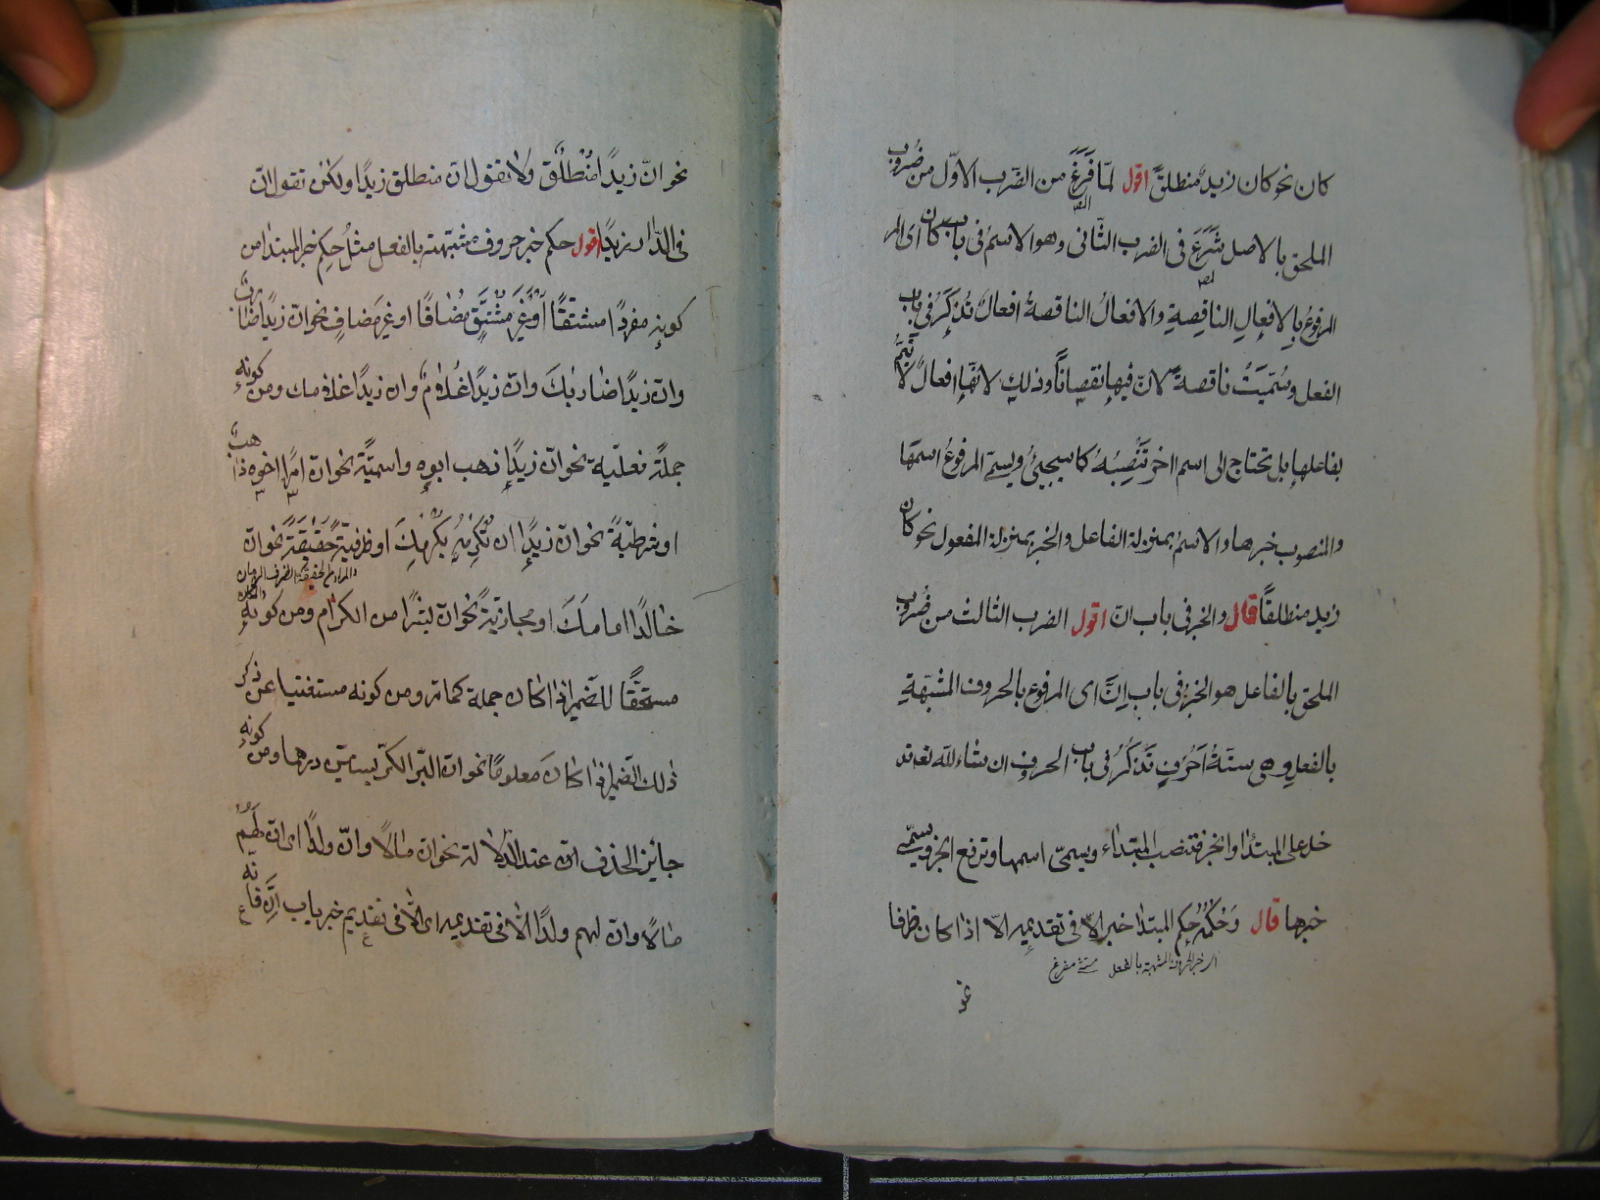 كان نحو كان زيد منطلقً اقول لمّا فَرَغَ من الضّرب الاوّل من ضُروب
الملحق بالاصل شَرَعَ فى الضرب الثّانى وهو الاسمُ فى باب كان اى
المرفوعُ بالافعالِ الناقصةِ والافعالُ الناقصةُ افعالٌ تُذكَرُ فى باب
الفعل وسُمّيَتْ ناقصةً لانّ فيها نقصاناً وذلك لانّها افعالٌ لا تَتِمُّ
بفاعلها بل تحتاج الى اسم اخر تَنْصِبُهُ كما سيجئُ ويسمّ المرفوعُ اسمَها
والمنصوب خبرها والاسمُ بمنزلة الفاعل والخبر بمنزلة المفعول نحو كان
زيد منطلقًا قال والخبر فى باب انّ اقول الضرب الثالث من ضُروب
الملحق بالفاعل هو الخبرُ فى باب اِنَّ اى المرفوع بالحروف المشبّهةِ
بالفعلِ وهى ستّةُ اَحرُفٍ تُذكَرُ فى باب الحروف ان شاء الله تعا تد
خل على المبتدا والخبر فتنصب المبتداء ويسمّى اسمها وترفع الخبر ويسمّى
خبرها قال وَحُكْمُهُ حُكم المبتدا خبر الّا فى تقديمه الّا اذا كان ظرفا
خبر الحروف المشبهة بالفعل مستثنى مفرغ
نحو
نحو انّ زيدًا مُنْطلقٌ ولا تقول انّ منطلق زيدًا ولكن تقول انّ
فى الدّار زيدًا اقول حكم خبر حروف مشبّهة بالفعل مثلُ حكم خبر المبتدا من
كونه مفردًا مشتقًّا اَوْ غَيْرَ مُشْتَقٍّ مُضافًا او غير مَضافٍ نحو انّ زيدًا ضاربٌ
وانّ زيدًا ضاربُكَ وانّ زيدًا غُلامٌ وان زيدًا غلامك ومن كونهِ
جملةً فعليةً نحو انّ زيدًا ذهب ابوه واسميّة نحو انّ عمرًا اخوه ذاهبٌ
او شرطيّةً نحو انّ زيدًا ان تُكْرِمْهُ يُكْرِمْكَ او ظرفيةً حَقِيْقَةً نحو انّ
والمراد من الحقيقة الظرف الزمان والمكان
خالدًا امامَكَ او مجازيّةً نحو انّ بشرًا من الكرام ومن كونهِ
مستحقًّا للضمير اذا كان جملة كما مر ومن كونه مستغنيا عن ذكر
ذلك الضمير اذا كانَ معلومًا نحو انّ البرّ الكرّ بستين درهما ومن كونهِ
جائز الحذف انّ عند الدّلالة نحو انّ مالًا وانّ ولدًا اى انّ لهم
مالًا وانّ لهم ولدًا الّا فى تقديمه اى الّا فى تقديم خبر باب اِنَّ فانه